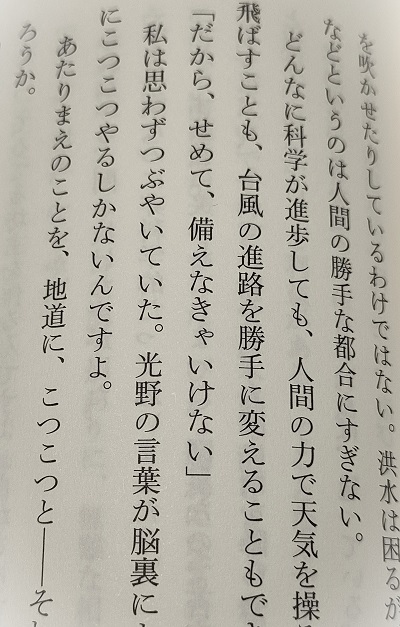 を吹かせたりしているわけではない。洪水は困るが
などというのは人間の勝手な都合にすぎない。
どんなに科学が進歩しても、人間の力で天気を操
飛ばすことも、台風の進路を勝手に変えることもでき
「だから、せめて、備えなきゃいけない」
私は思わずつぶやいていた。光野の言葉が脳裏に
にこつこつやるしかないんですよ。
あたりまえのことを、地道に、こつこつと――それ
ろうか。